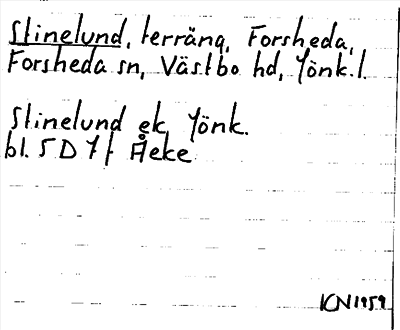 Stinelund, terräng, Forsheda,
Forsheda sn, Västbo hd, Jönk. l.
Stinelund ek, Jönk.
bl. 5 D 7 f Åeke
KN 1959